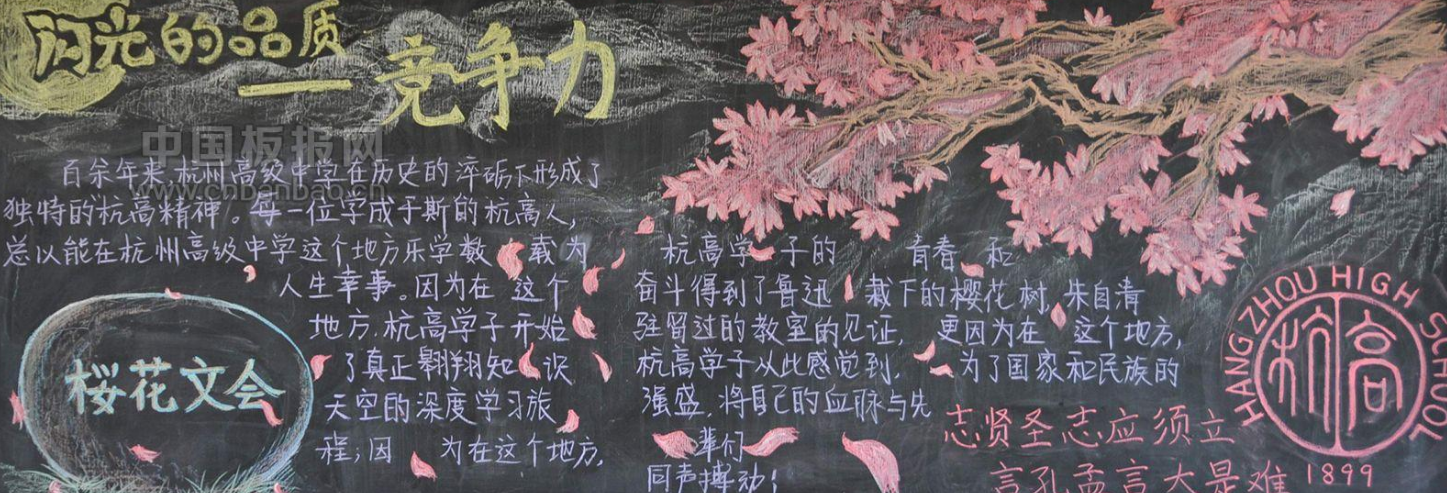 闪光的品质
—竞争力
中国板报网
www.cnbanbao.cn
百余年来,杭州高级中学在历史的淬砺下形成了
独特的杭高精神。每一位学成于斯的杭高人,
总以能在杭州高级中学这个地方乐学数载为
人生幸事。因为在这个
地方,杭高学子开始
了真正翱翔知识
天空的深度学习旅
程;因为在这个地方,
杭高学子的青春和
奋斗得到了鲁迅栽下的樱花树,朱自清
驻留过的教室的见证,更因为在这个地方,
杭高学子从此感觉到,为了国家和民族的
强盛,将自己的血脉与先
辈们
同声搏动!
樱花文会
志贤圣志应须立
言孔孟言大是难
HANGZHOU HIGH SCHOOL
杭高
1899